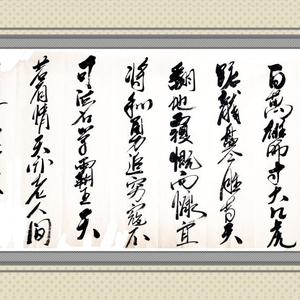 百萬雄师过大江虎
踞龍盤今胜昔天
翻地覆慨而慷宜
将剩勇追穷寇不
可沽名学霸王天
若有情天亦老人间